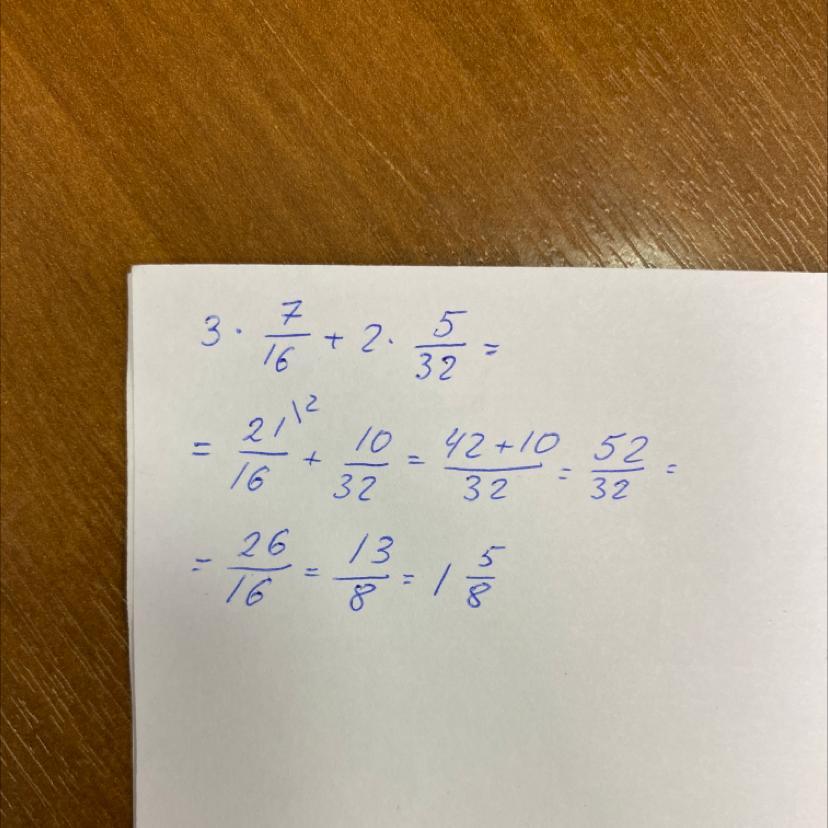 3 · 7/16 + 2 · 5/32 =
= 21\2/16 + 10/32 = 42+10/32 = 52/32 =
= 26/16 = 13/8 = 1 5/8